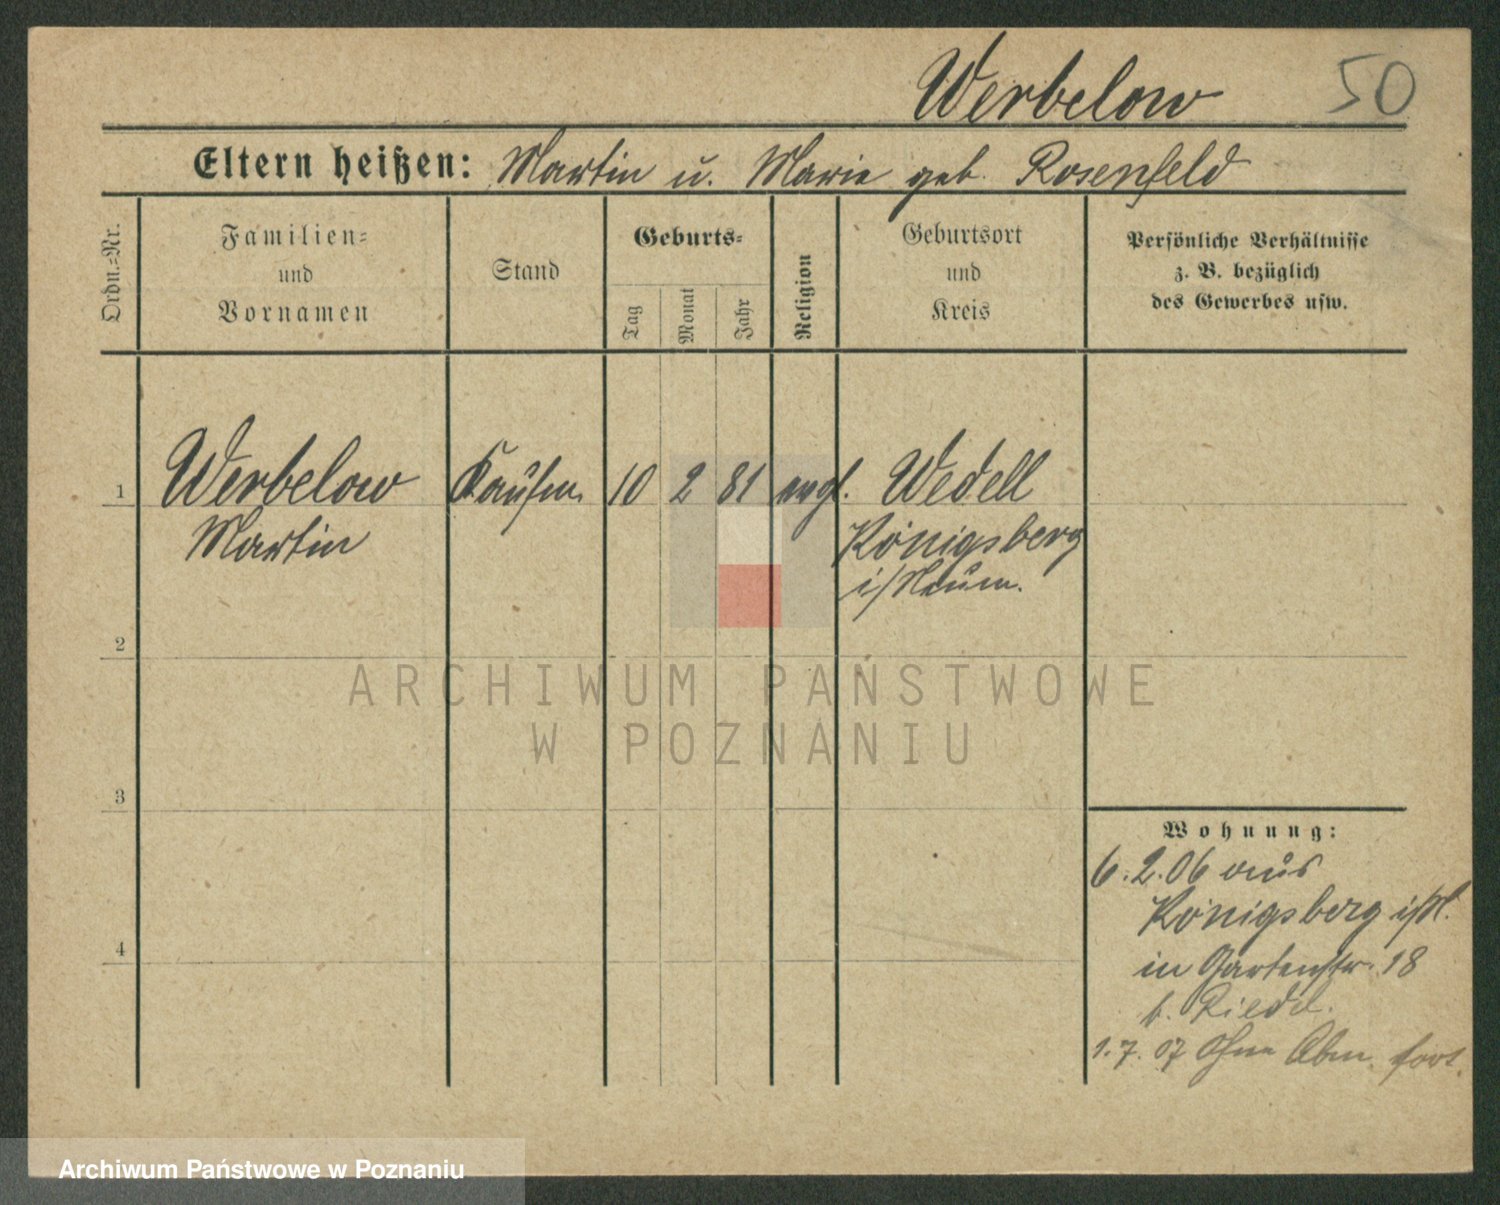 Werbelow 50
Eltern heißen: Martin u. Marie geb. Rosenfeld
Ordn.-Nr.
Familien-
und
Vornamen
Stand
Geburts-
Tag
Monat
Jahr
Religion
Geburtsort
und
Kreis
Persönliche Verhältnisse
z. B. bezüglich
des Gewerbes usw.
1 Werbelow Kaufm. 10 2 81 evgl. Wedell
Martin Königsberg
i/Neum.
2
3
4
Wohnung:
6.2.06 aus
Königsberg i/N.
in Gartenstr. 18
b. Riedel.
1.7.07 Ohne Abm. fort.
ARCHIWUM PAŃSTWOWE
W POZNANIU
Archiwum Państwowe w Poznaniu